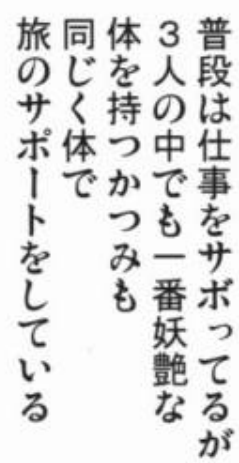 普段は仕事をサボってるが
３人の中でも一番妖艶な
体を持つかつみも
同じく体で
旅のサポートをしている